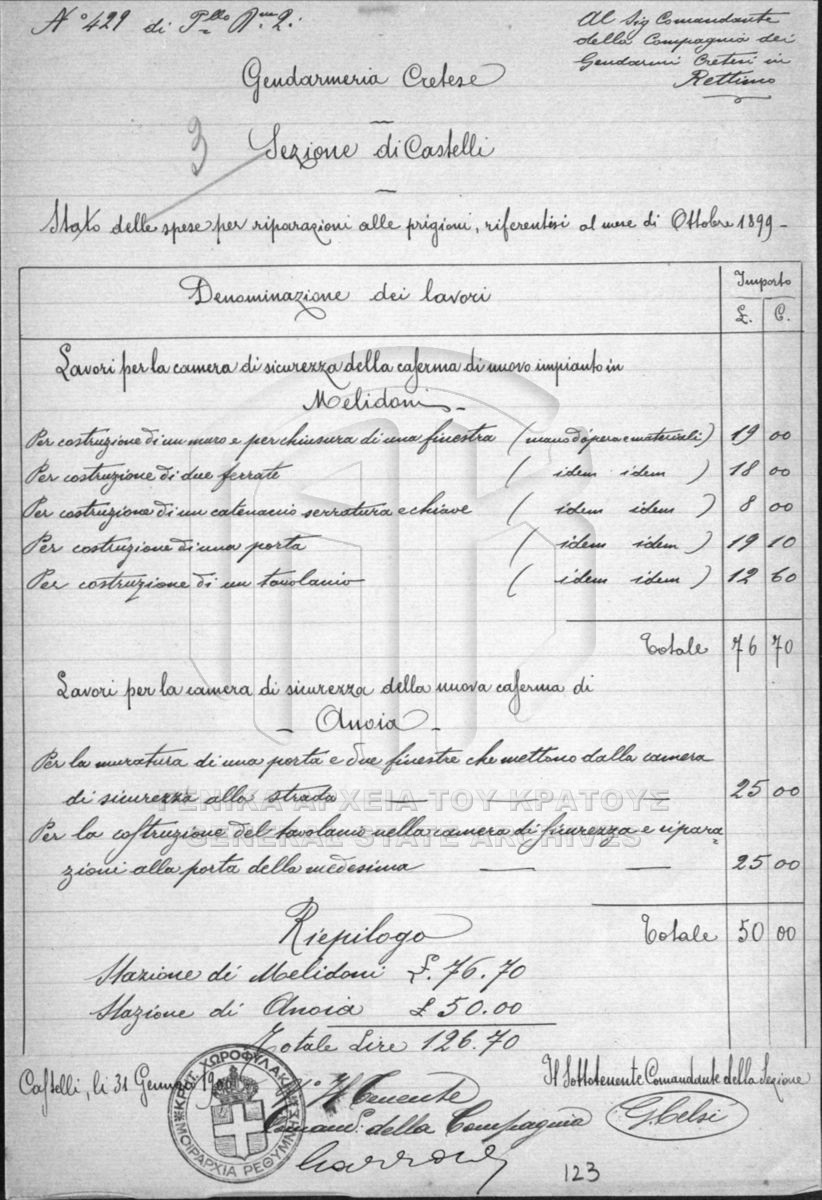 N° 429 di P.llo
Al Sig Comandante
della Compagnia dei
Gendarmi Cretesi in
Rettimo
Gendarmeria Cretese
3
Sezione di Castelli
Stato delle spese per riparazioni alle prigioni, riferentisi al mese di Ottobre 1899 -
Denominazione dei lavori
Importo
£. C.
Lavori per la camera di sicurezza della caserma di nuovo impianto in
Melidoni
Per costruzione di un muro e per chiusura di una finestra (mano d'opera e materiali) 19 00
Per costruzione di due ferrate (idem idem) 18 00
Per costruzione di un catenaccio serratura e chiave (idem idem) 8 00
Per costruzione di una porta (idem idem) 19 10
Per costruzione di un tavolaccio (idem idem) 12 60
Totale 76 70
Lavori per la camera di sicurezza della nuova caserma di
- Anoia -
Per la muratura di una porta e due finestre che mettono dalla camera
di sicurezza alla strada 25 00
ΓΕΝΙΚΑ ΑΡΧΕΙΑ ΤΟΥ ΚΡΑΤΟΥΣ
Per la costruzione del tavolaccio nella camera di sicurezza e ripara=
GENERAL STATE ARCHIVES
zioni alla porta della medesima 25 00
Totale 50 00
Riepilogo
Stazione di Melidoni £. 76.70
Stazione di Anoia £ 50.00
Totale Lire 126.70
Castelli, li 31 Gennaio
ΚΡΗΤ. ΧΩΡΟΦΥΛΑΚΗ
ΜΟΙΡΑΡΧΙΑ ΡΕΘΥΜΝΗΣ
V° Il Tenente
Comand. della Compagnia
Il Sottotenente Comandante della Sezione
G. Celsi
123